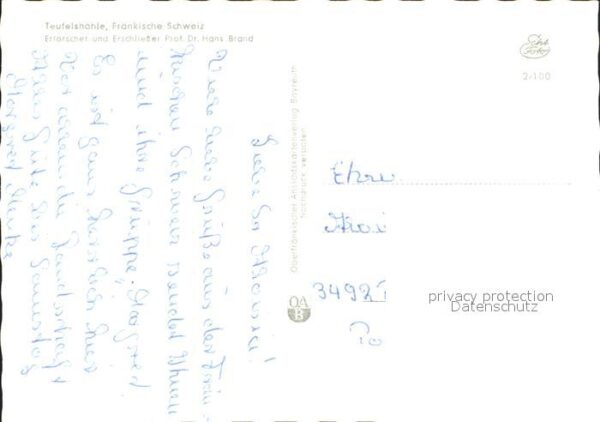 Teufelshöhle, Fränkische Schweiz
Erforscher und Erschließer Prof. Dr. Hans Brand
Echt Foto
2/100
Oberfränkischer Ansichtskartenverlag Bayreuth
Nachdruck verboten
OA
B
Viele liebe Grüße aus der Frän-
kischen Schweiz sendet Ihnen
und ihre Gruppe, Margret
Es ist ganz herrlich hier
vor allem die Landschaft
Alles Gute bis Samstag
Margret
34981
privacy protection
Datenschutz